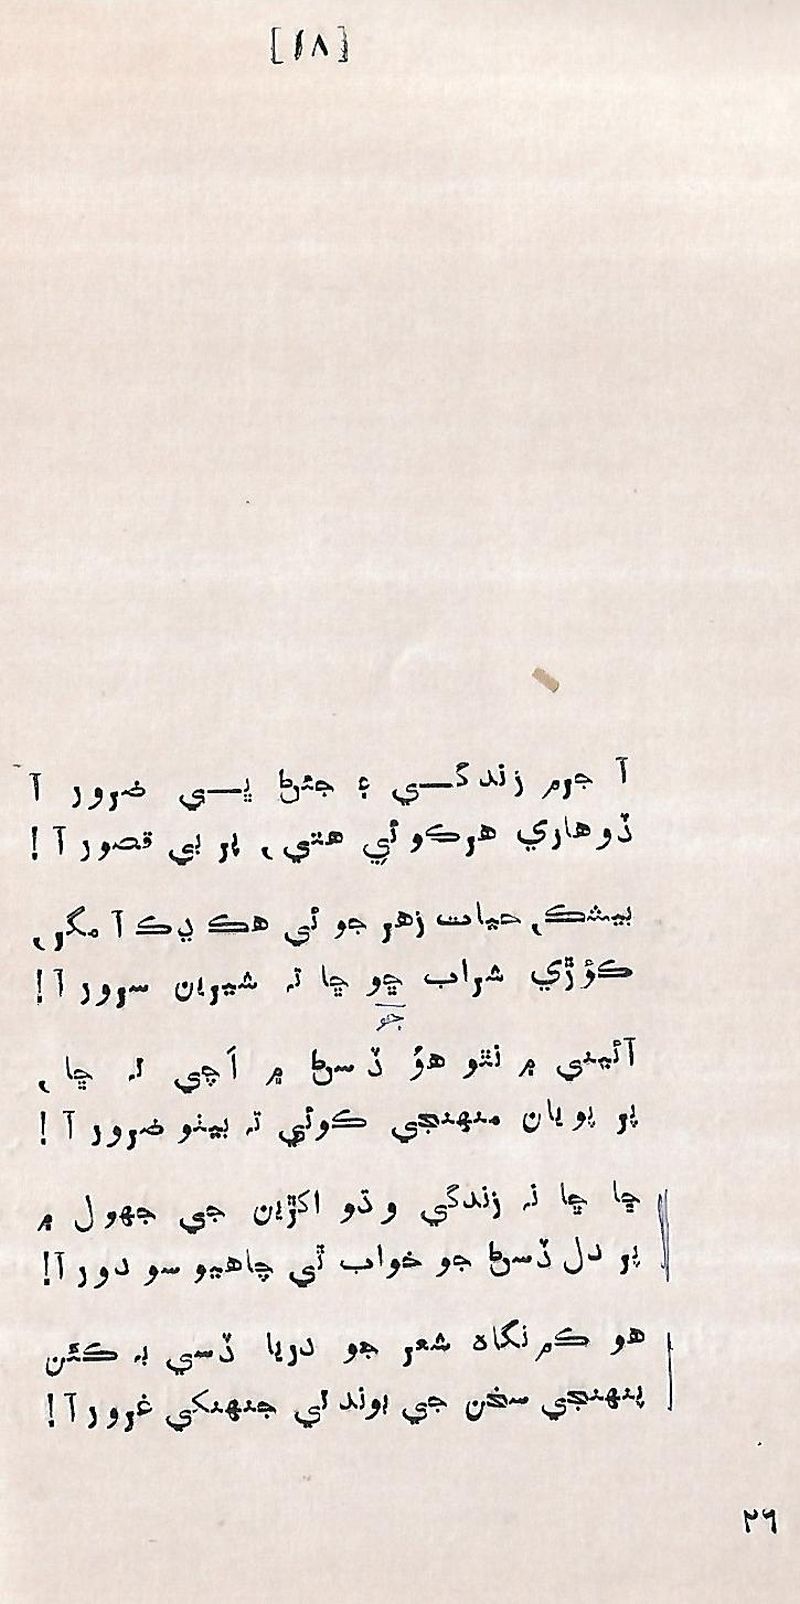 [۱۸]
آ جرم زندگي ۽ جئڻ ڀي ضرور آ
ڏوهاري هرڪوئي هتي، پر بي قصور آ!
بيشڪ، حيات زهر جو ئي هڪ ڍڪ آ مگر،
ڪؤڙي شراب ڇو ڇا نہ شيرين سرور آ!
جو
آئيني ۾ نٿو هؤ ڏسڻ ۾ اَچي نہ ڇا،
پر پويان منهنجي ڪوئي تہ بيٺو ضرور آ!
ڇا ڇا نہ زندگي وڌو اکڙين جي جهول ۾
پر دل ڏسڻ جو خواب ٿي چاهيو سو دور آ!
هو ڪم نگاه شعر جو دريا ڏسي بہ ڪٿن
پنهنجي سخن جي بوند ئي جنهنکي غرور آ!
۲۶